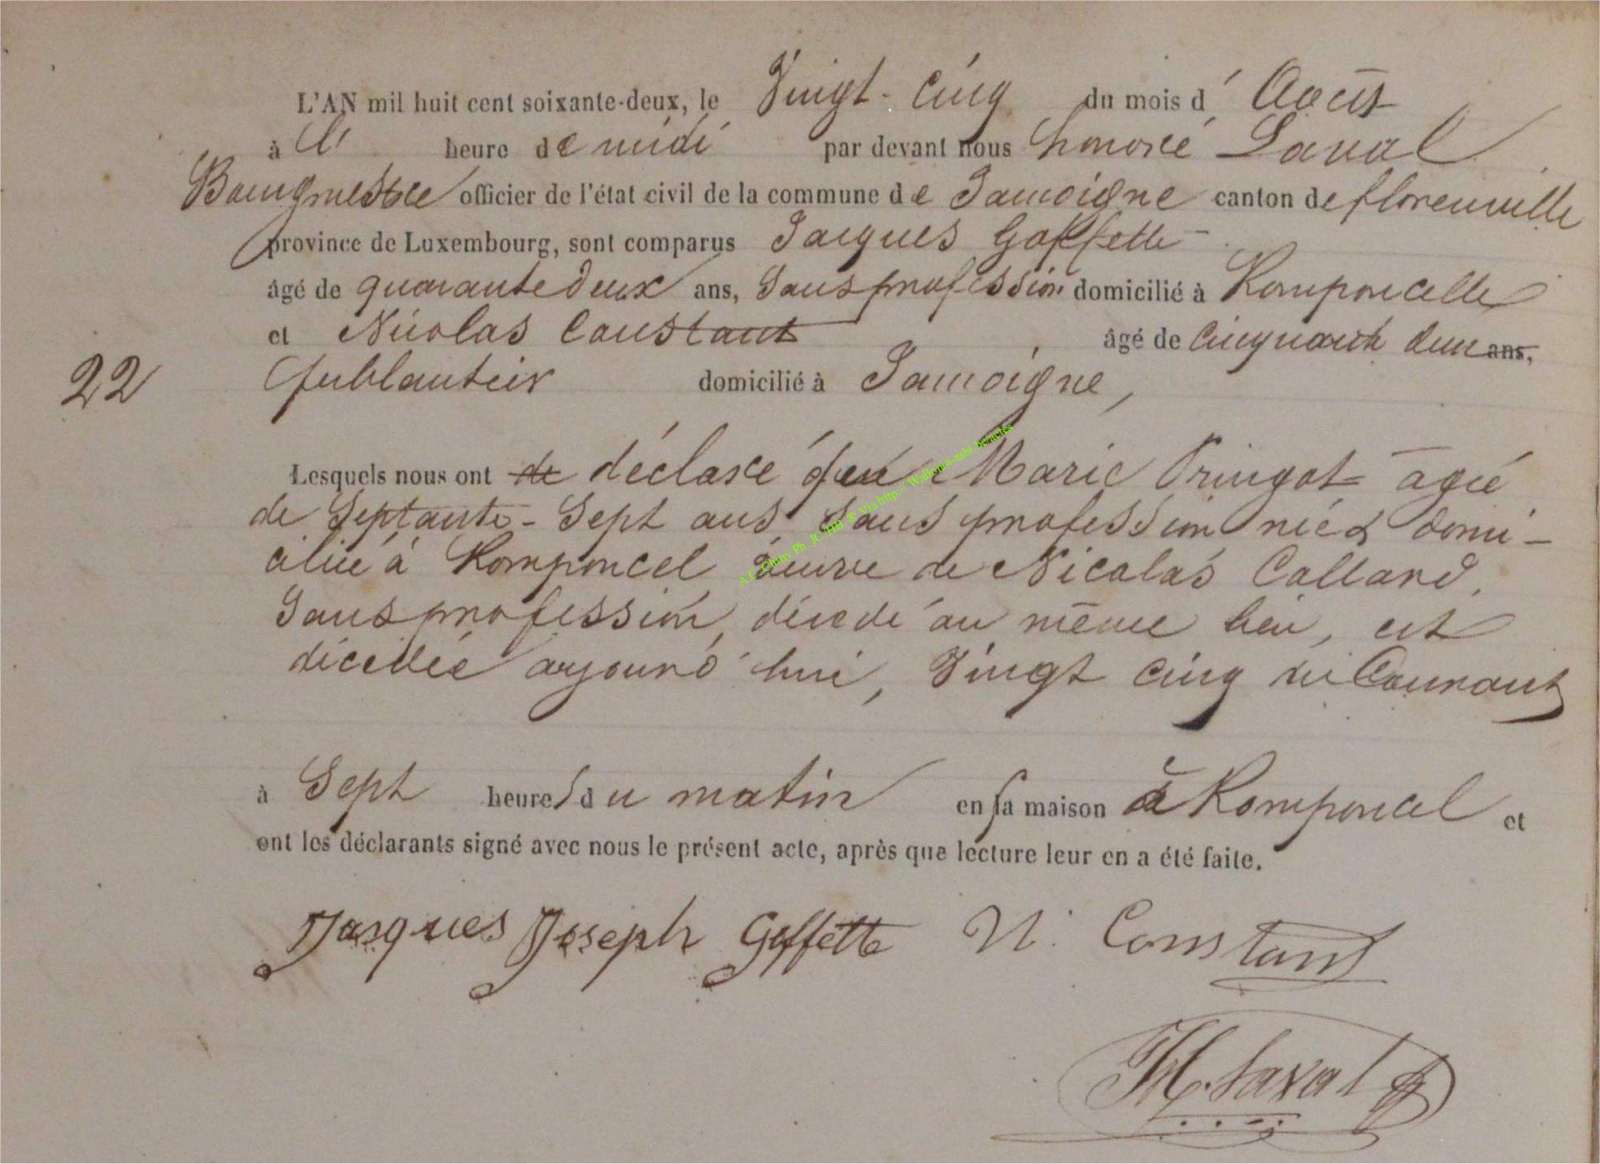 L'AN mil huit cent soixante-deux, le Vingt-Cinq du mois d'Août
à l' heure de midi par devant nous honoré Laval
Bourgmestre officier de l'état civil de la commune de Jamoigne canton de florenville
province de Luxembourg, sont comparus Jacques Goffette
âgé de quarante deux ans, Sans profession domicilié à Romponcelle
et Nicolas Constant âgé de cinquante deux ans,
22 ferblantier domicilié à Jamoigne,
Lesquels nous ont de déclaré que Marie Pringot agée
de Septante-Sept ans Sans profession née & domi-
ciliée à Romponcel veuve de Nicolas Collard,
Sans profession, décedé au même lieu, est
décedée aujourd'hui, Vingt cinq du Courant
à Sept heures du matin en sa maison à Romponcel et
ont les déclarants signé avec nous le présent acte, après que lecture leur en a été faite.
Jasques Joseph Goffette N. Constant
H. Laval